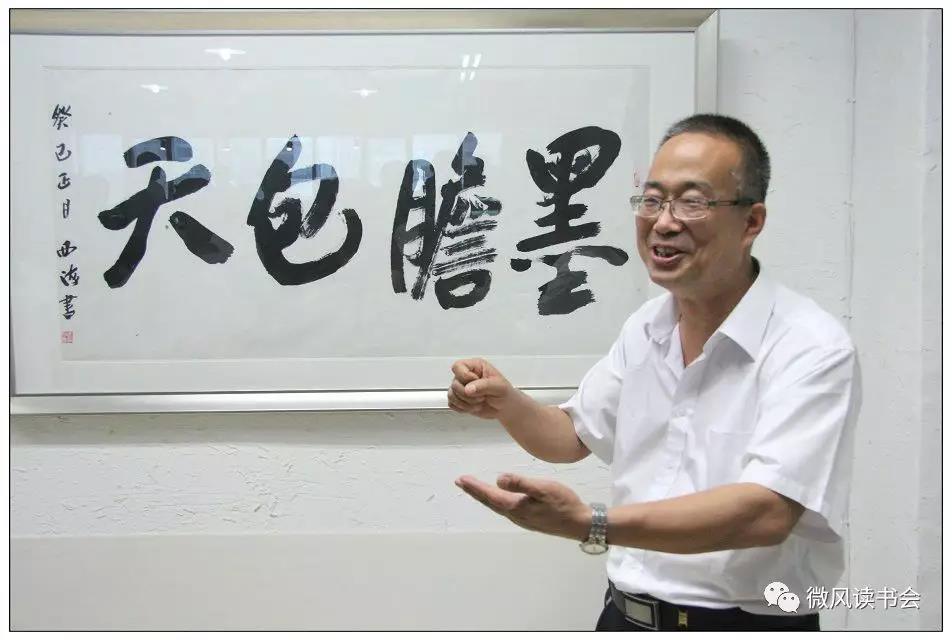 墨膽包天
癸巳正月 西海書
微风读书会